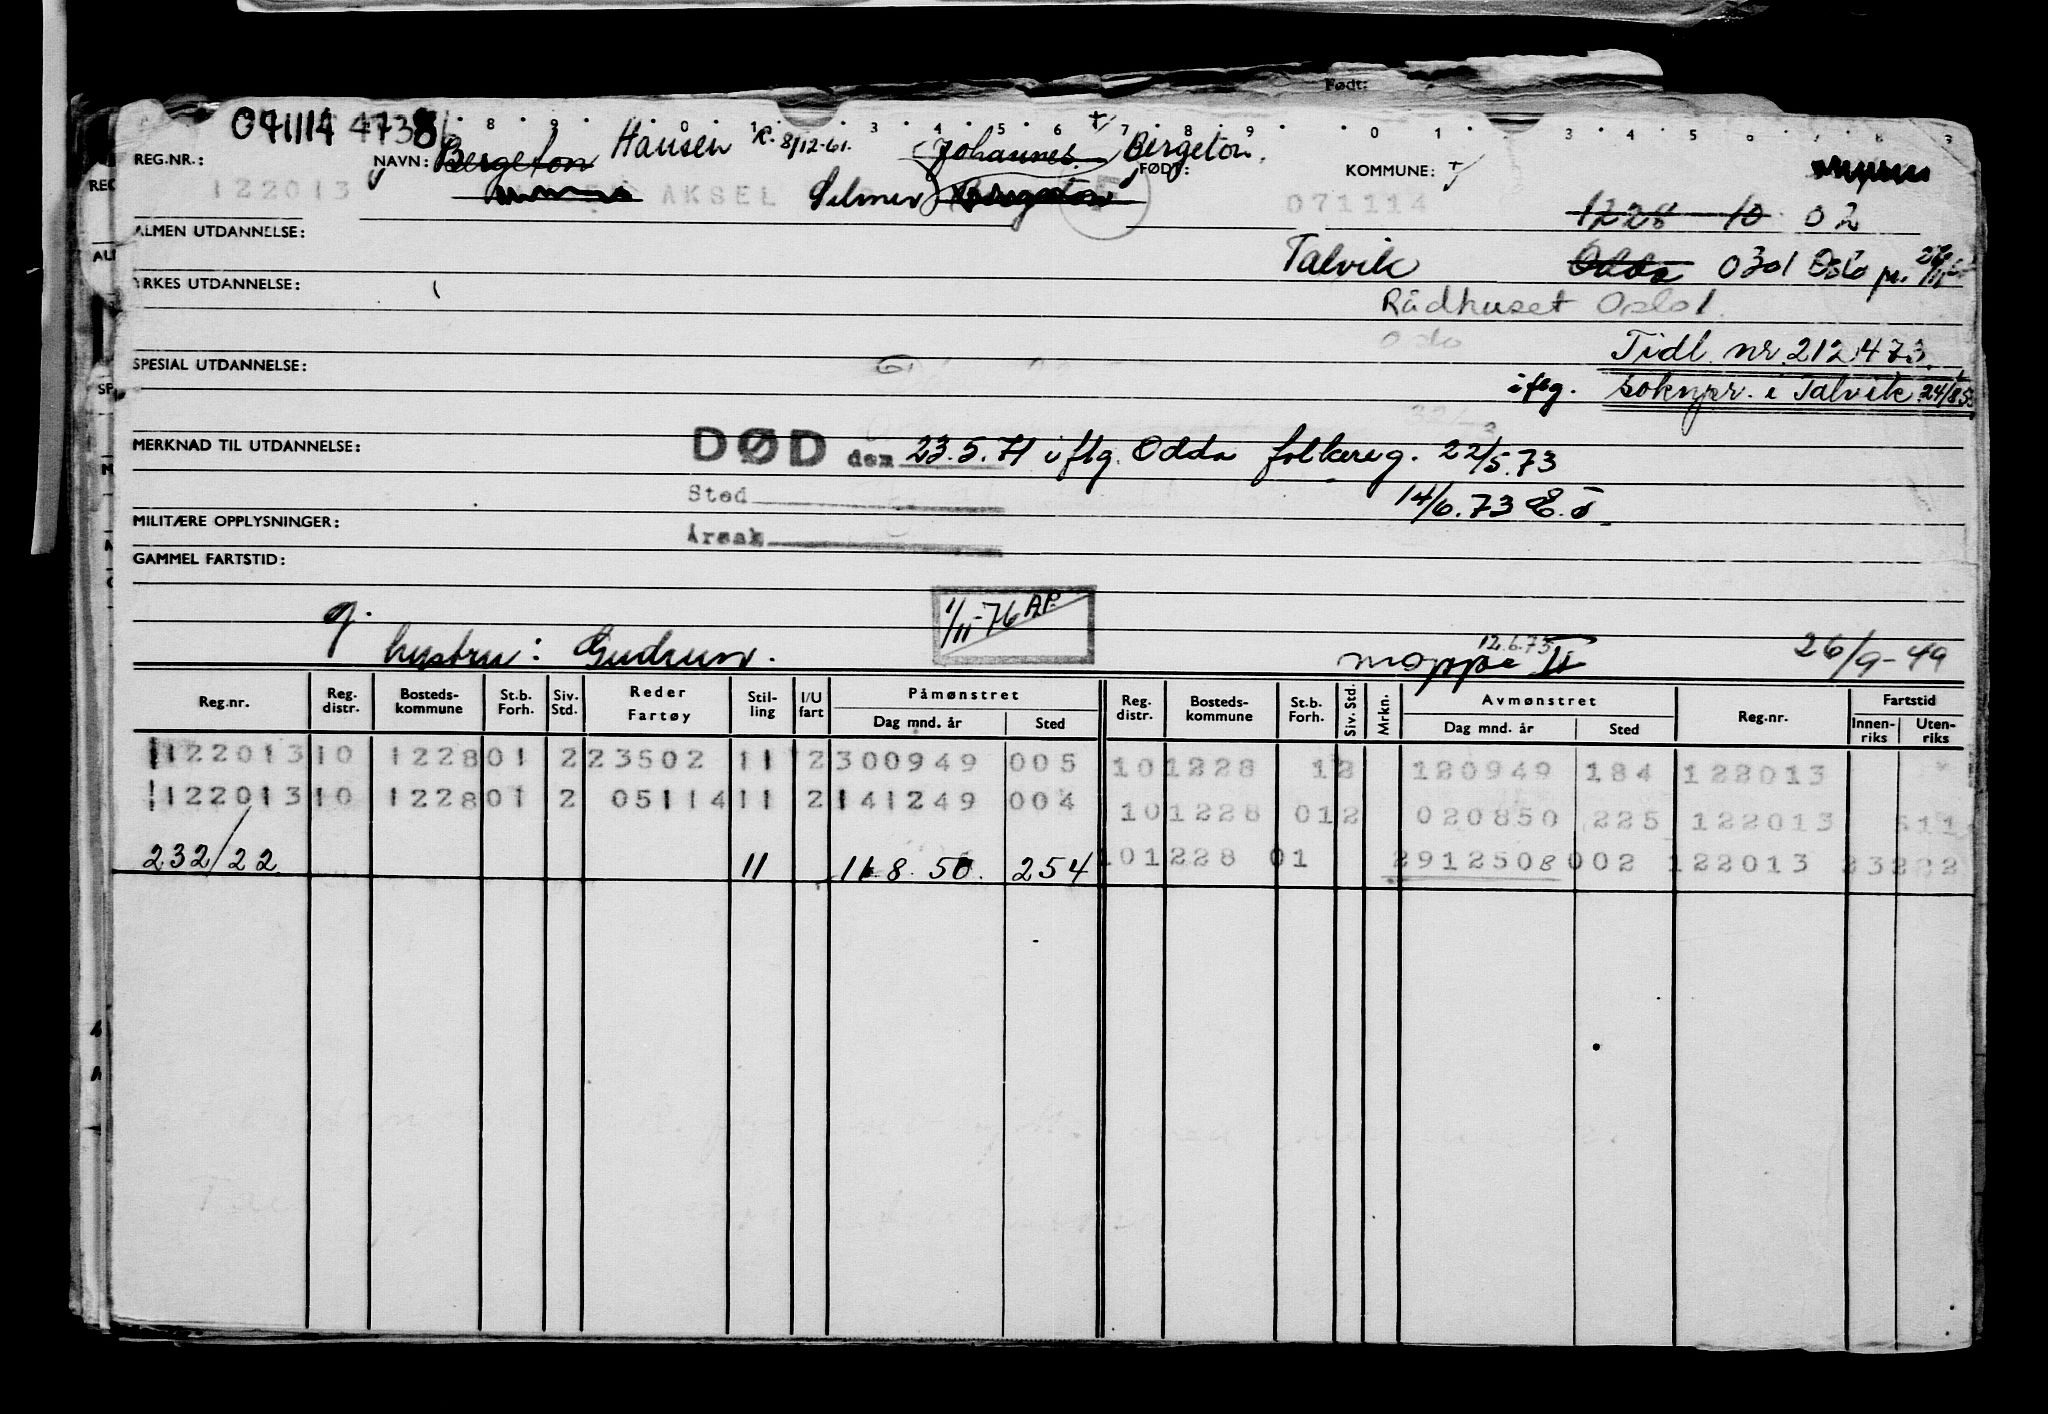 Født:
071114 4738
8 9 0 1 3 4 5 6 7 8 9 0 1 3 4 5 6 7 8 9
REG.NR.: NAVN: Bergeton Hansen R. 8/12-61. (Johannes) Bergeton. FØDT: KOMMUNE:
122013 AKSEL Selmer Bergeton 071114 1228 10 02
ALMEN UTDANNELSE:
Talvik Odda 0301 Oslo
YRKES UTDANNELSE:
Rådhuset Oslo 1.
Tidl. nr. 212473
SPESIAL UTDANNELSE:
iflg. soknepr. i Talvik 24/8 53
DØD den 23.5.71 iflg. Odda folkereg. 22/5.73
MERKNAD TIL UTDANNELSE:
Sted 14/6.73 E.T.
MILITÆRE OPPLYSNINGER:
Årsak
GAMMEL FARTSTID:
g. 1/11-76 AP.
hustru: Gudrun. 12.6.73 mappe II 26/9-49
Reg.nr. Reg. distr. Bosteds- kommune St.b. Forh. Siv. Std. Reder Fartøy Stil- ling I/U fart Påmønstret Dag mnd. år Sted Reg. distr. Bosteds- kommune St.b. Forh. Siv. Std. Mrkn. Avmønstret Dag mnd. år Sted Reg.nr. Fartstid Innen- riks Uten- riks
122013 10 1228 01 2 23502 11 2 300949 005 10 1228 12 120949 184 122013 *
122013 10 1228 01 2 05114 11 2 141249 004 10 1228 01 2 020850 225 122013 511
232/22 11 11.8.50. 254 10 1228 01 2912508 002 122013 23202